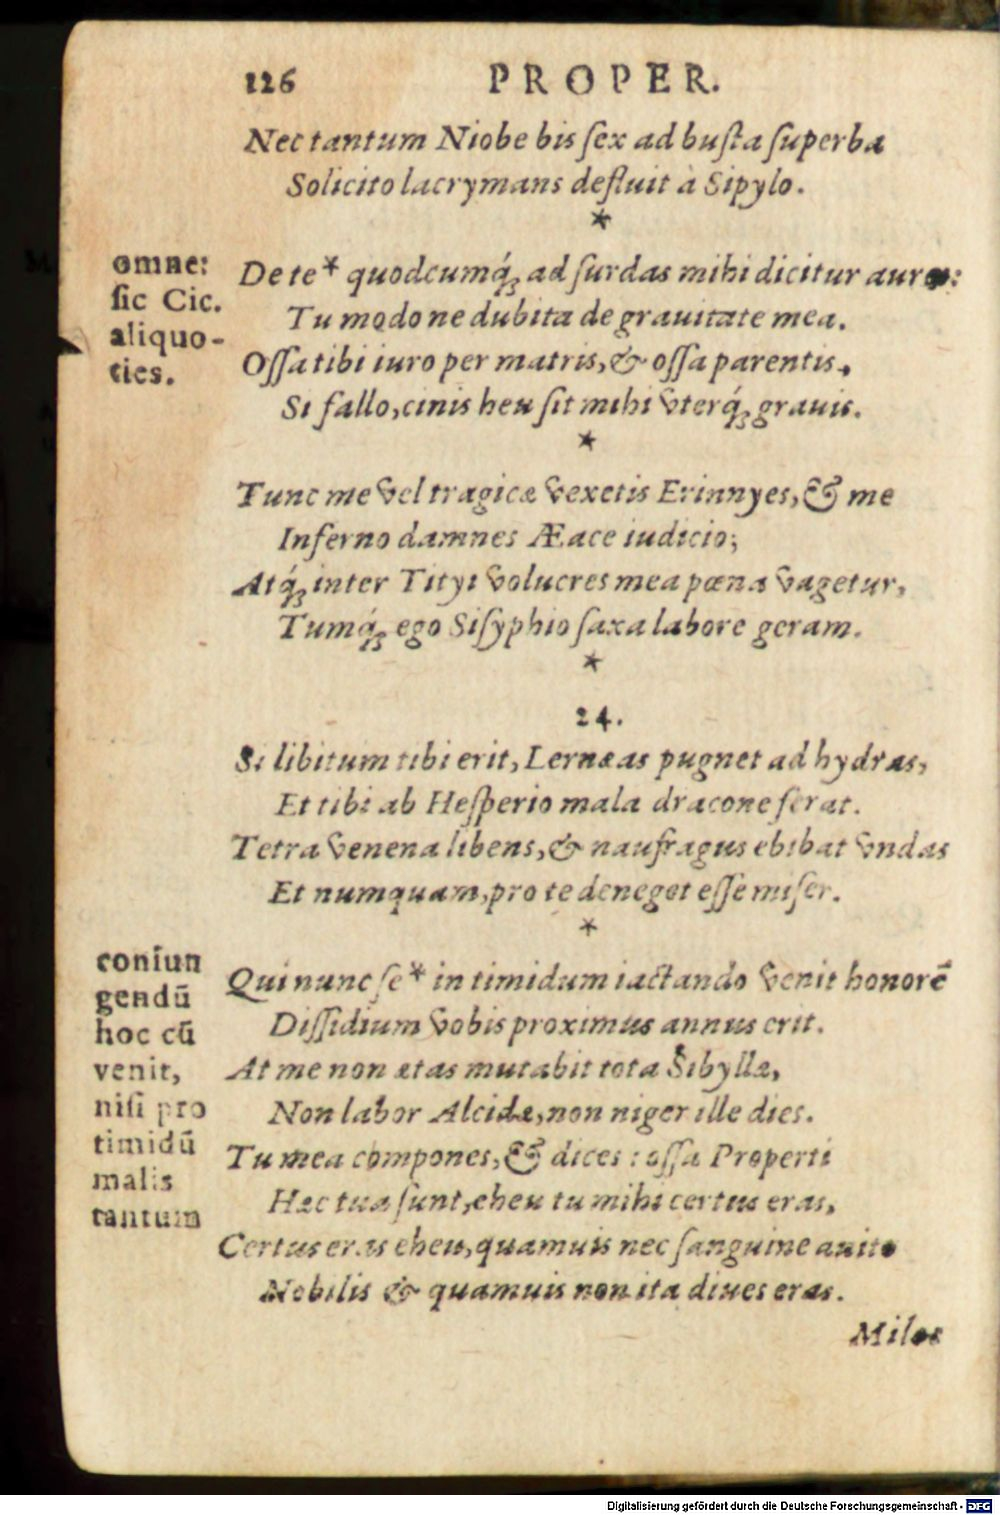 126 PROPER.
Nec tantum Niobe bis ſex ad buſta ſuperba
Solicito lacrymans defluit à Sipylo.
*
omne:
ſic Cic.
aliquo-
ties.
De te* quodcumq́ꝫ ad ſurdas mihi dicitur aures:
Tu modo ne dubita de grauitate mea.
Oſſa tibi iuro per matris, & oſſa parentis,
Si fallo, cinis heu ſit mihi vterq́ꝫ grauis.
*
Tunc me vel tragicæ vexetis Erinnyes, & me
Inferno damnes Æace iudicio;
Atq́ꝫ inter Tityi volucres mea pœna vagetur,
Tumq́ꝫ ego Siſyphio ſaxa labore geram.
*
24.
Si libitum tibi erit, Lernæas pugnet ad hydras,
Et tibi ab Heſperio mala dracone ferat.
Tetra venena libens, & naufragus ebibat vndas
Et numquam, pro te deneget eſſe miſer.
*
coniun
gendū
hoc cū
venit,
niſi pro
timidū
malis
tantum
Qui nunc ſe* in timidum iactando venit honorē
Diſſidium vobis proximus annus erit.
At me non ætas mutabit tota Sibyllæ,
Non labor Alcidæ, non niger ille dies.
Tu mea compones, & dices: oſſa Properti
Hæc tua ſunt, eheu tu mihi certus eras,
Certus eras eheu, quamuis nec ſanguine auito
Nobilis & quamuis non ita diues eras.
Digitalisierung gefördert durch die Deutsche Forschungsgemeinschaft - DFG